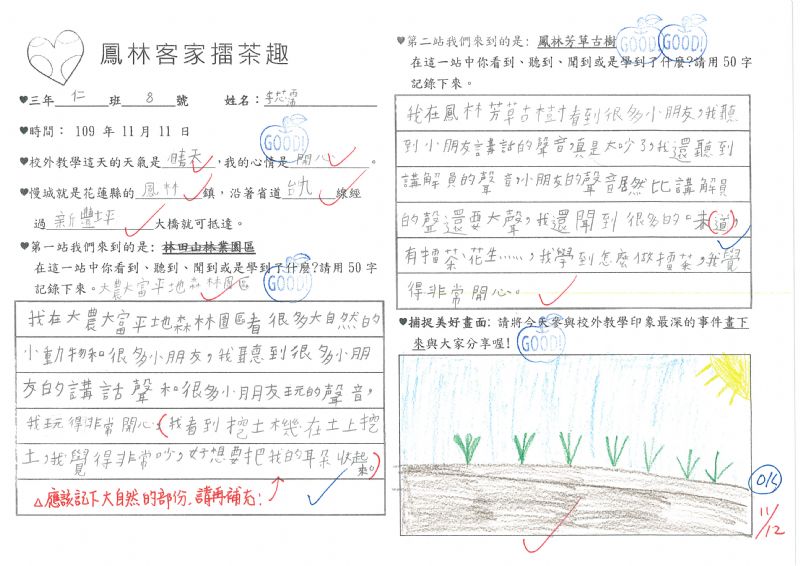 鳳林客家擂茶趣
♥三年仁班8號 姓名:李芯霈
♥時間: 109 年 11 月 11 日
GOOD!
♥校外教學這天的天氣是晴天,我的心情是開心。
♥慢城就是花蓮縣的鳳林鎮,沿著省道台九線經
過新豐坪大橋就可抵達。
♥第一站我們來到的是:林田山林業園區
在這一站中你看到、聽到、聞到或是學到了什麼?請用 50 字
記錄下來。大農大富平地森林園區
GOOD!
我在大農大富平地森林園區看很多大自然的
小動物和很多小朋友,我聽到很多小朋
友的講話聲和很多小朋友玩的聲音,
我玩得非常開心。(我看到挖土機在土上挖
土,我覺得非常吵,好想要把我的耳朵收起
來。)
△應該記下大自然的部份,請再補充!
♥第二站我們來到的是:鳳林芳草古樹
GOOD! GOOD!
在這一站中你看到、聽到、聞到或是學到了什麼?請用 50 字
記錄下來。
我在鳳林芳草古樹看到很多小朋友,我聽
到小朋友講話的聲音,真是太吵了,我還聽到
講解員的聲音,小朋友的聲音居然比講解員
的聲還要大聲,我還聞到很多的。味(道),
有擂茶、花生……,我學到怎麼做擂茶,我覺
得非常開心。
♥捕捉美好畫面:請將今天參與校外教學印象最深的事件畫下
來與大家分享喔!
GOOD!
O/K
11/12